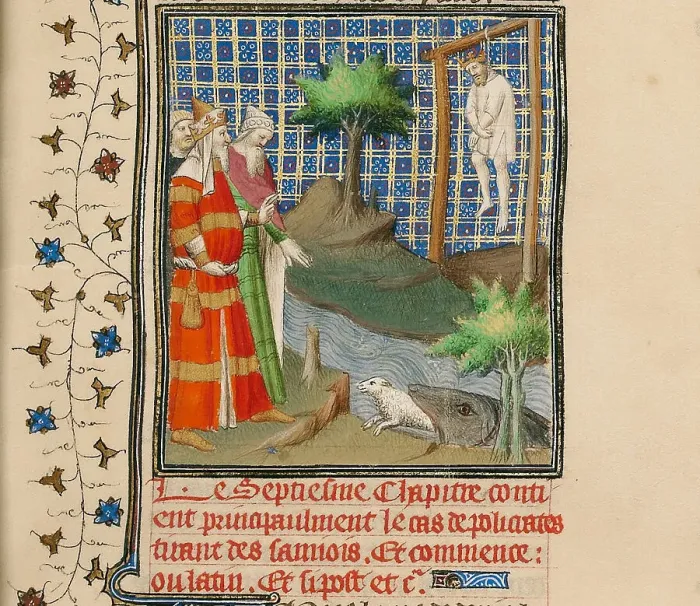 Le Septiesme Chapitre conti
ent principaulment le cas de policrates
tirant des samiois. Et commence:
ou latin. Et si post et cͣ.